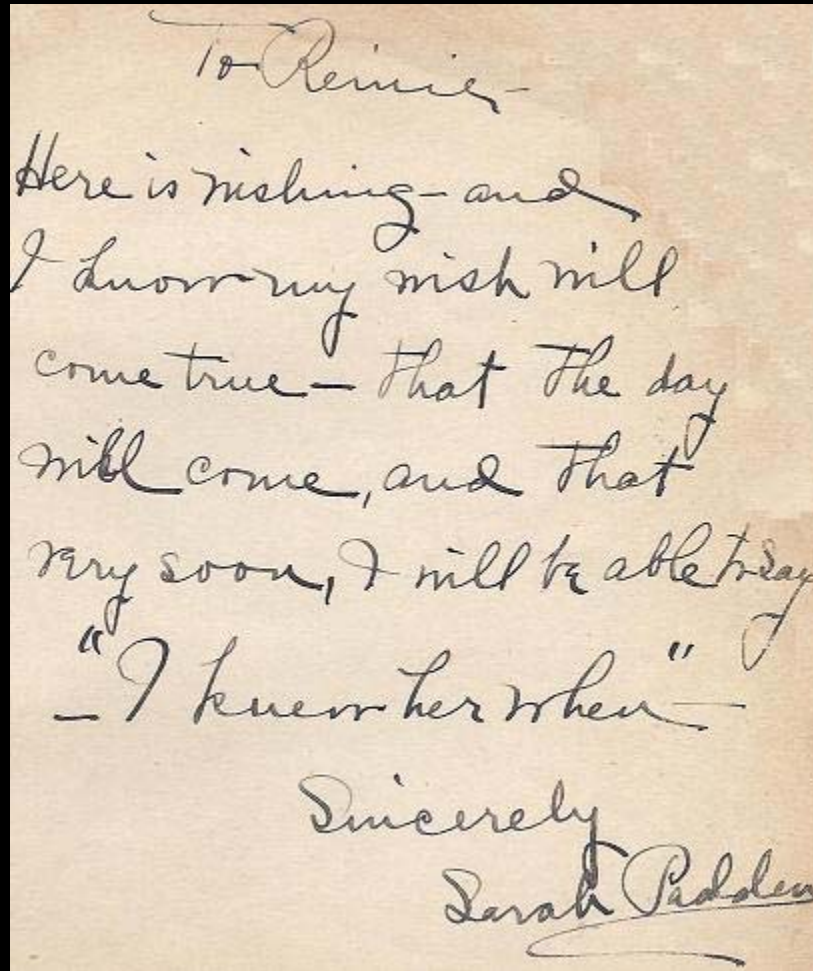 To Reinie,-
Here is wishing - and
I know my wish will
come true - that the day
will come, and that
very soon, I will be able to say
- "I knew her when" -
Sincerely
Sarah Padden